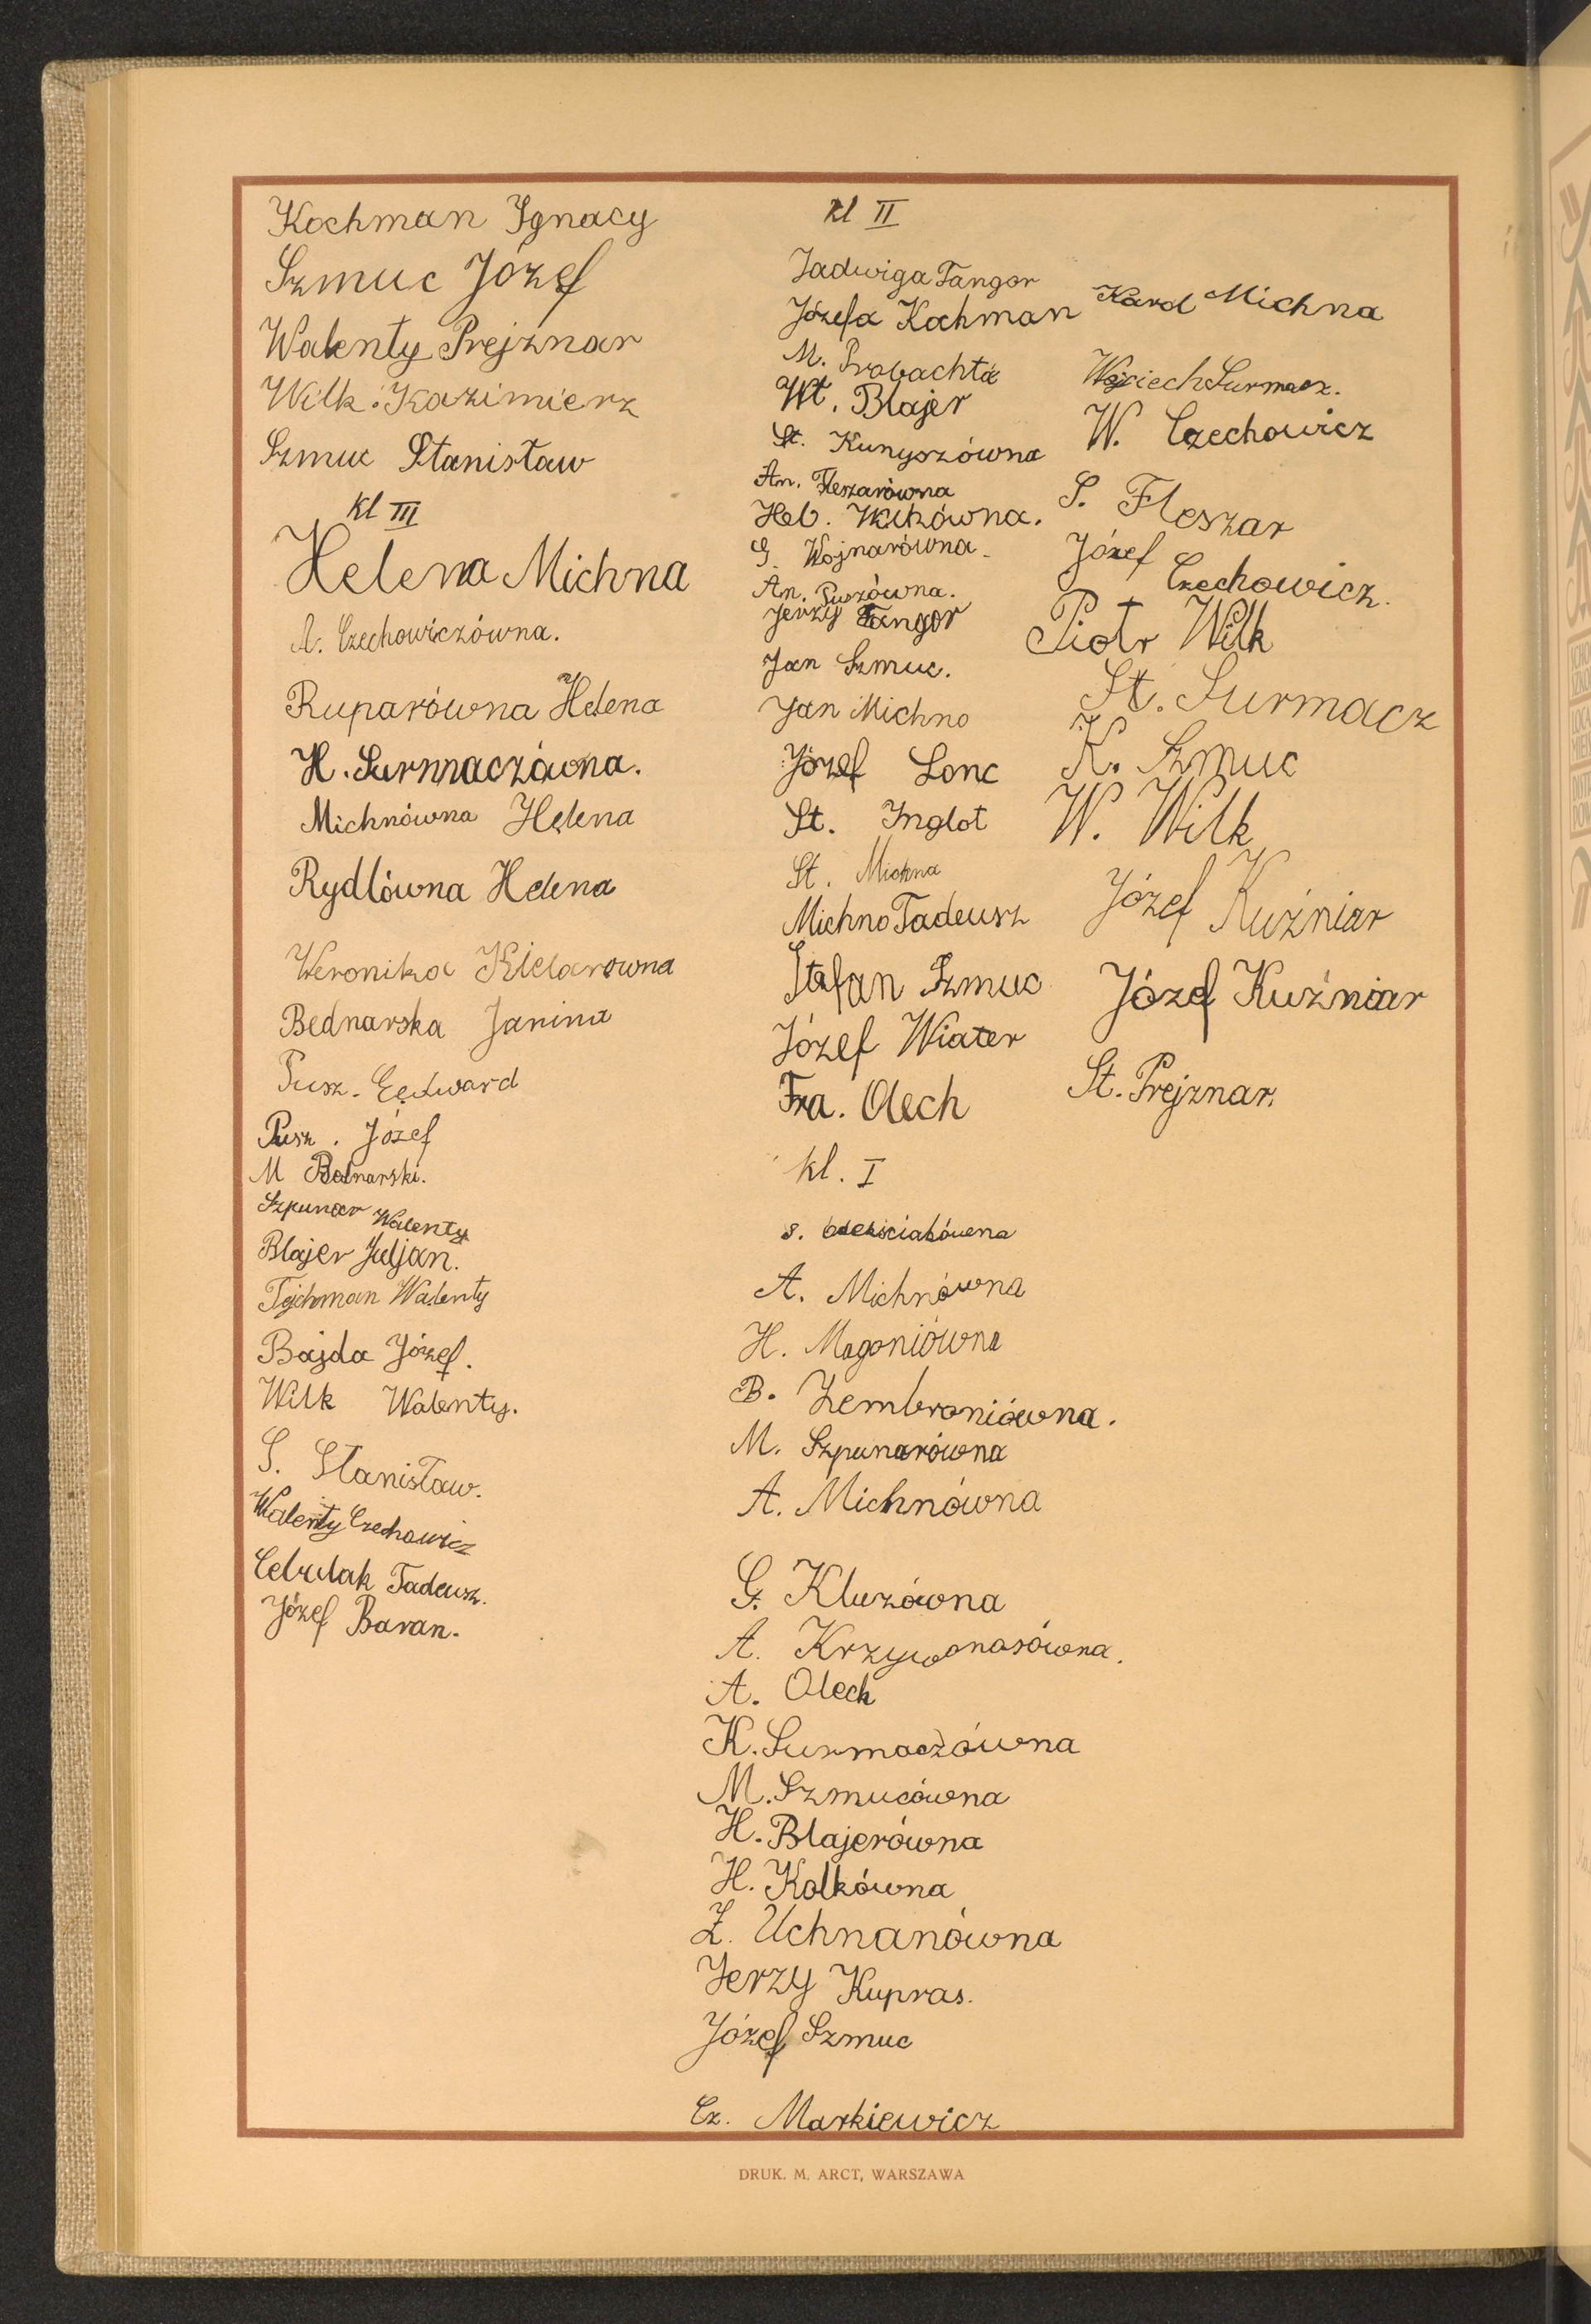 Kochman Ignacy
Szmuc Józef
Walenty Prejznar
Wilk Kazimierz
Szmuc Stanisław
kl III
Helena Michna
A. Czechowiczówna.
Ruparówna Helena
H. Surmaczówna.
Michnówna Helena
Rydlówna Helena
Weronika Kielarowna
Bednarska Janina
Pusz. Edward
Pusz. Józef
M Bednarski.
Szpunar Walenty
Blajer Juljan.
Tejchman Walenty
Bajda Józef.
Wilk Walenty.
S. Stanisław.
Walenty Czechowicz
Cebulak Tadeusz.
Józef Baran.
kl II
Jadwiga Fangor
Józefa Kochman
M. Probachta
Wł. Blajer
St. Kunyszówna
An. Fleszarówna
Hel. Wilkówna.
G. Wojnarówna
An. Puszówna.
Jerzy Fangor
Jan Szmuc.
Jan Michno
Józef Lonc
St. Inglot
St. Michna
Michno Tadeusz
Stefan Szmuc
Józef Wiater
Fra. Olech
Karol Michna
Wojciech Surmacz.
W. Czechowicz
S. Fleszar
Józef Czechowicz.
Piotr Wilk
St. Surmacz
K. Szmuc
W. Wilk
Józef Kuźniar
Józef Kuźniar
St. Prejznar.
kl. I
S.
A. Michnówna
H. Magoniówna
B. Zembroniówna.
M. Szpunarówna
A. Michnówna
G. Kluzówna
A. Krzywonosówna.
A. Olech
K. Surmaczówna
M. Szmucówna
H. Blajerówna
H. Kolkówna
Z. Uchnanówna
Jerzy Kupras.
Józef Szmuc
Cz. Markiewicz
DRUK. M. ARCT, WARSZAWA